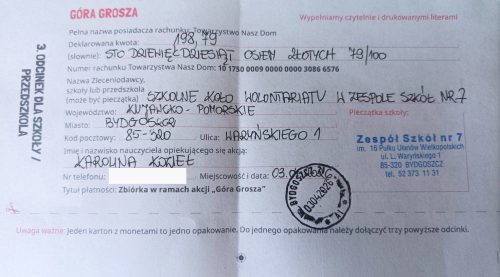 GÓRA GROSZA
Wypełniamy czytelnie i drukowanymi literami
Pełna nazwa posiadacza rachunku: Towarzystwo Nasz Dom
Deklarowana kwota: 198,79
(słownie): STO DZIEWIĘĆDZIESIĄT OSIEM ZŁOTYCH 79/100
Numer rachunku Towarzystwa Nasz Dom: 10 1750 0009 0000 0000 3086 6576
Nazwa Zleceniodawcy,
szkoły lub przedszkola
(może być pieczątka) SZKOLNE KOŁO WOLONTARIATU W ZESPOLE SZKÓŁ NR 7
Województwo: KUJAWSKO - POMORSKIE
Pieczątka szkoły:
Miasto: BYDGOSZCZ
Kod pocztowy: 85-320 Ulica: WARYŃSKIEGO 1
Imię i nazwisko nauczyciela opiekującego się akcją:
KAROLINA KOZIEŁ
Nr telefonu:
Miejscowość i data: 03.04.202
Tytuł płatności: Zbiórka w ramach akcji „Góra Grosza”
Zespół Szkół nr 7
im. 16 Pułku Ułanów Wielkopolskich
ul. L. Waryńskiego 1
85-320 BYDGOSZCZ
tel. 52 373 11 31
BYDGOSZCZ
Uwaga ważne: Jeden karton z monetami to jedno opakowanie. Do jednego opakowania należy dołączyć trzy powyższe odcinki.
3. ODCINEK DLA SZKOŁY /
PRZEDSZKOLA